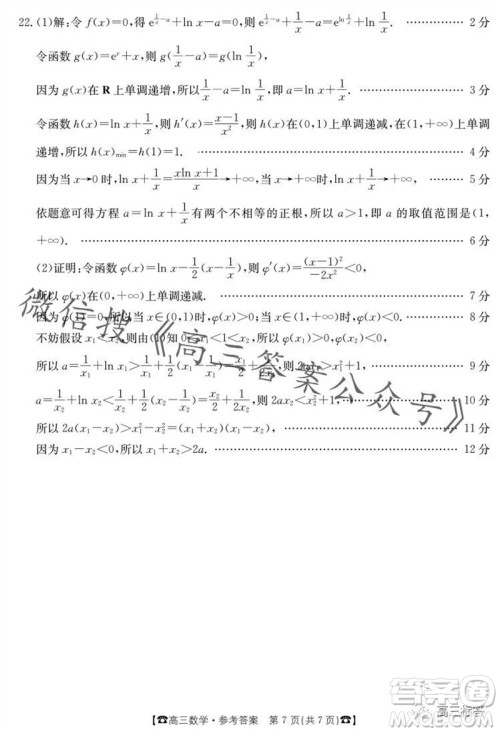 22.(1)解:令 f(x)=0,得 e^{1/x-a}+ln x-a=0,则 e^{1/x-a}+1/x-a=e^{ln 1/x}+ln 1/x. …… 2 分
令函数 g(x)=e^x+x,则 g(1/x-a)=g(ln 1/x),
因为 g(x)在 R 上单调递增,所以 1/x-a=ln 1/x,即 a=ln x+1/x. …… 3 分
令函数 h(x)=ln x+1/x,则 h′(x)=(x-1)/x²,所以 h(x)在(0,1)上单调递减,在(1,+∞)上单调
递增,所以 h(x)min=h(1)=1. …… 4 分
因为当 x→0 时,ln x+1/x=(xln x+1)/x→+∞,当 x→+∞时,ln x+1/x→+∞,
依题意可得方程 a=ln x+1/x 有两个不相等的正根,所以 a>1,即 a 的取值范围是(1,
+∞). …… 6 分
(2)证明:令函数 φ(x)=ln x-1/2(x-1/x),则 φ′(x)=(x-1)²/-2x²<0,
所以 φ(x)在(0,+∞)上单调递减. …… 7 分
因为 φ(1)=0,所以当 x∈(0,1)时,φ(x)>0;当 x∈(1,+∞)时,φ(x)<0. …… 8 分
不妨假设 x₁<x₂,则由(1)知 0<x₁<1<x₂,
所以 a=1/x₁+ln x₁>1/x₁+1/2(x₁-1/x₁)=x₁/2+1/2x₁,则 2ax₁>x₁²+1, …… 9 分
a=1/x₂+ln x₂<1/x₂+1/2(x₂-1/x₂)=x₂/2+1/2x₂,则 2ax₂<x₂²+1, …… 10 分
所以 2a(x₁-x₂)>x₁²-x₂²=(x₁-x₂)(x₁+x₂). …… 11 分
因为 x₁-x₂<0,所以 x₁+x₂>2a. …… 12 分
微信搜《高三答案公众号》
【☎高三数学·参考答案 第 7 页(共 7 页)☎】
高三标答